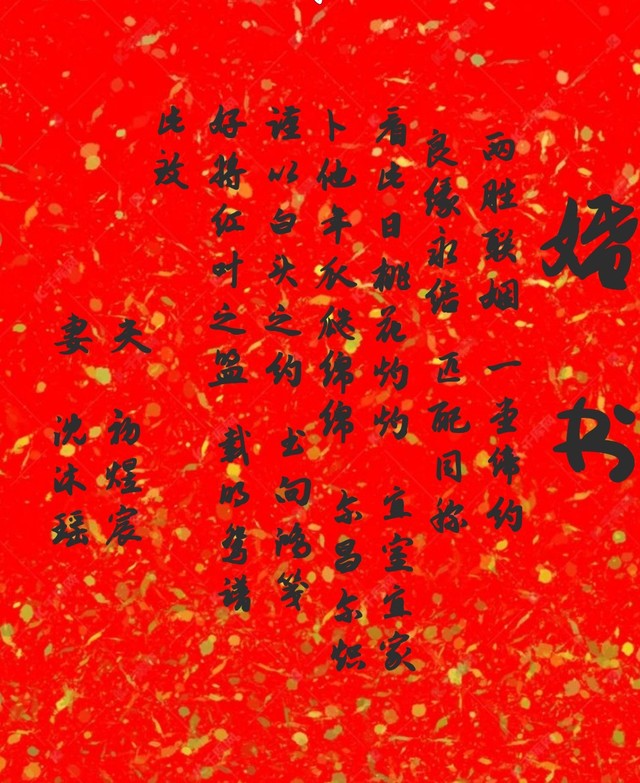 婚书
两胜联姻 一堂缔约
良缘永结 匹配同称
看此日桃花灼灼 宜室宜家
卜他年瓜瓞绵绵 尔昌尔炽
谨以白头之约 书向鸿笺
好将红叶之盟 载明鸳谱
此致
夫 煜宸
妻 沈沐瑶